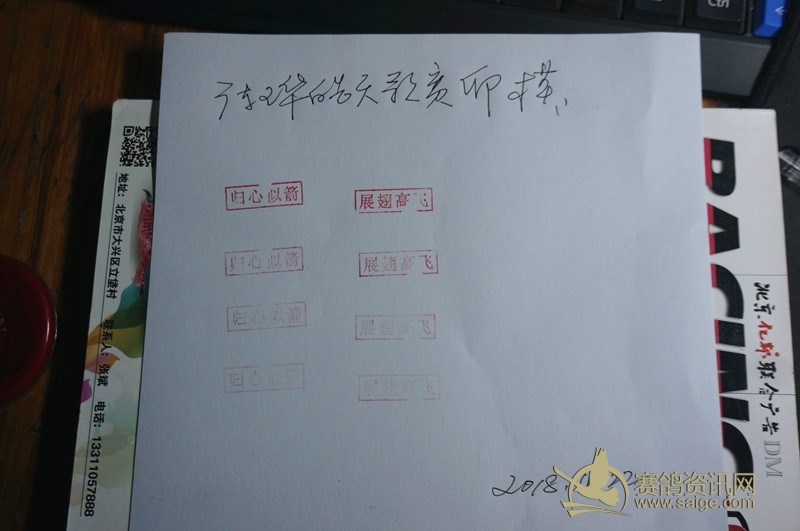 归心似箭 展翅高飞
归心似箭 展翅高飞
归心似箭 展翅高飞
归心似箭 展翅高飞
2018.
地址：北京市大兴区立垡村 联系人：张斌 电话：13311057888
RACING
北京 亿 联合广告 DM
赛鸽资讯网
www.saige.com